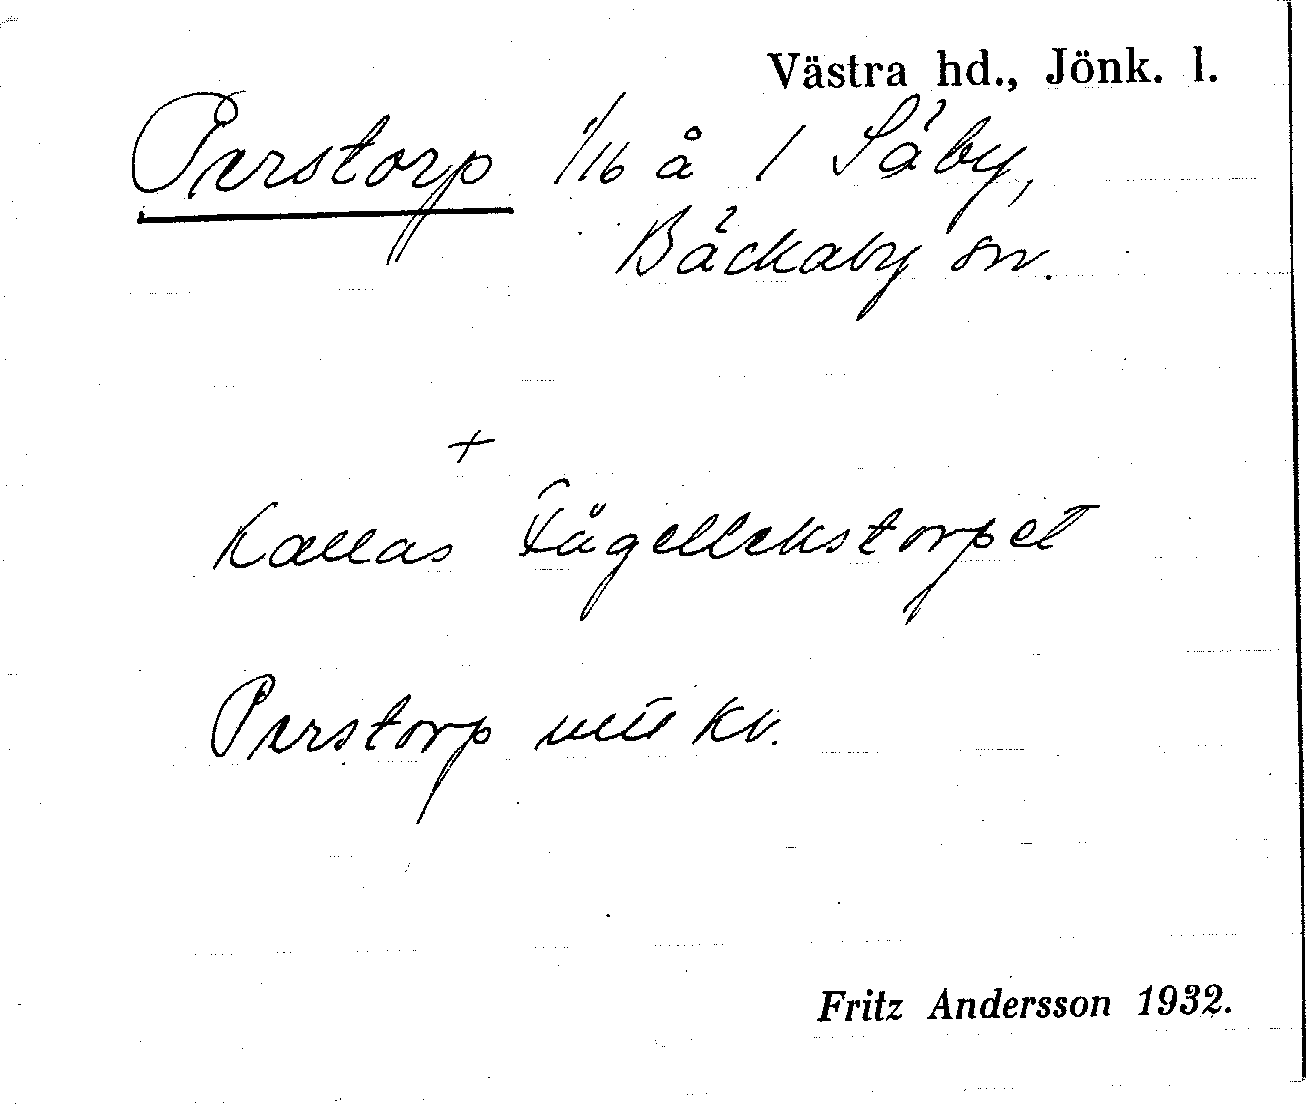 Västra hd., Jönk. l.
Perstorp 1/16 å 1 Säby,
Bäckaby sn.
+
Kallas Fågellekstorpet
Perstorp utu kv.
Fritz Andersson 1932.